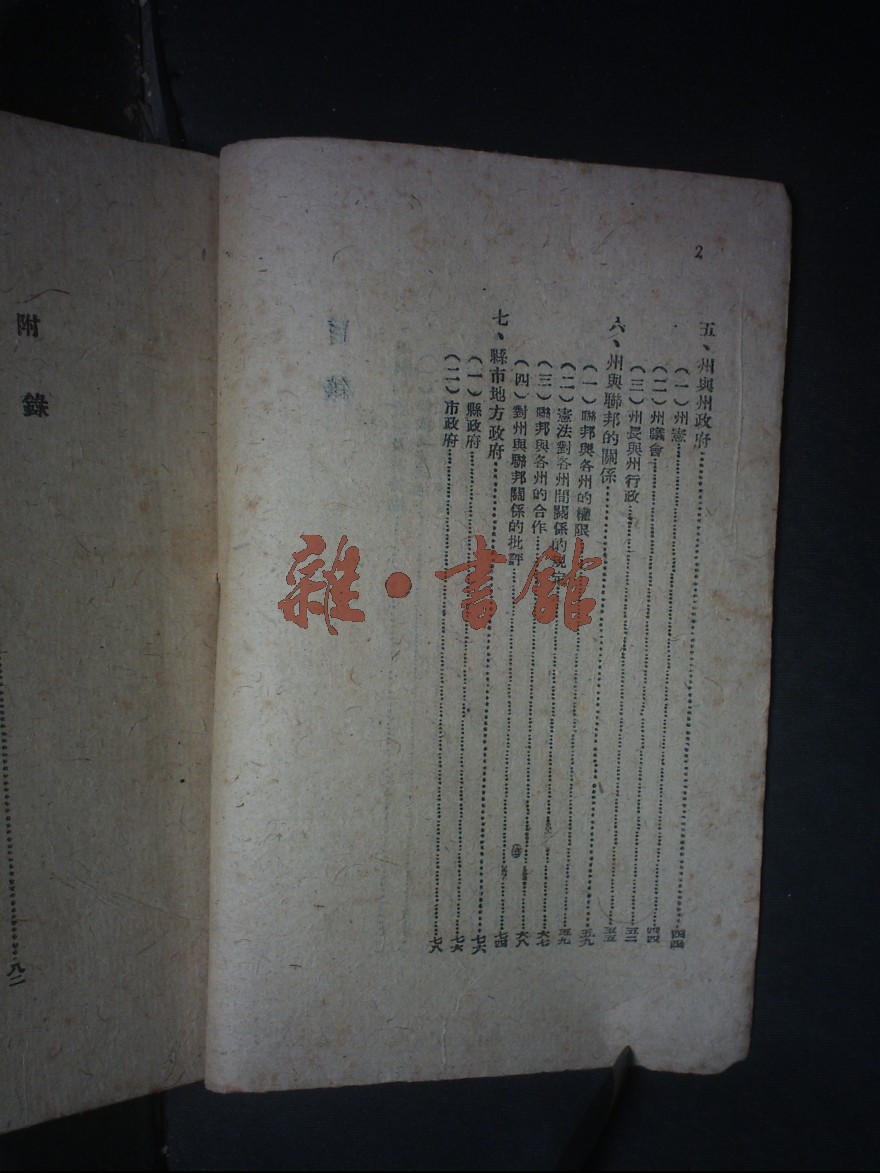 2
五、州與州政府……四四
(一)州憲……四四
(二)州議會……五二
(三)州長與州行政……五五
六、州與聯邦的關係……五九
(一)聯邦與各州的權限……五九
(二)憲法對各州間關係的規定……六七
(三)聯邦與各州的合作……六八
(四)對州與聯邦關係的批評……七四
七、縣市地方政府……七六
(一)縣政府……七六
(二)市政府……七八
目錄
附錄……八二
雜·書館